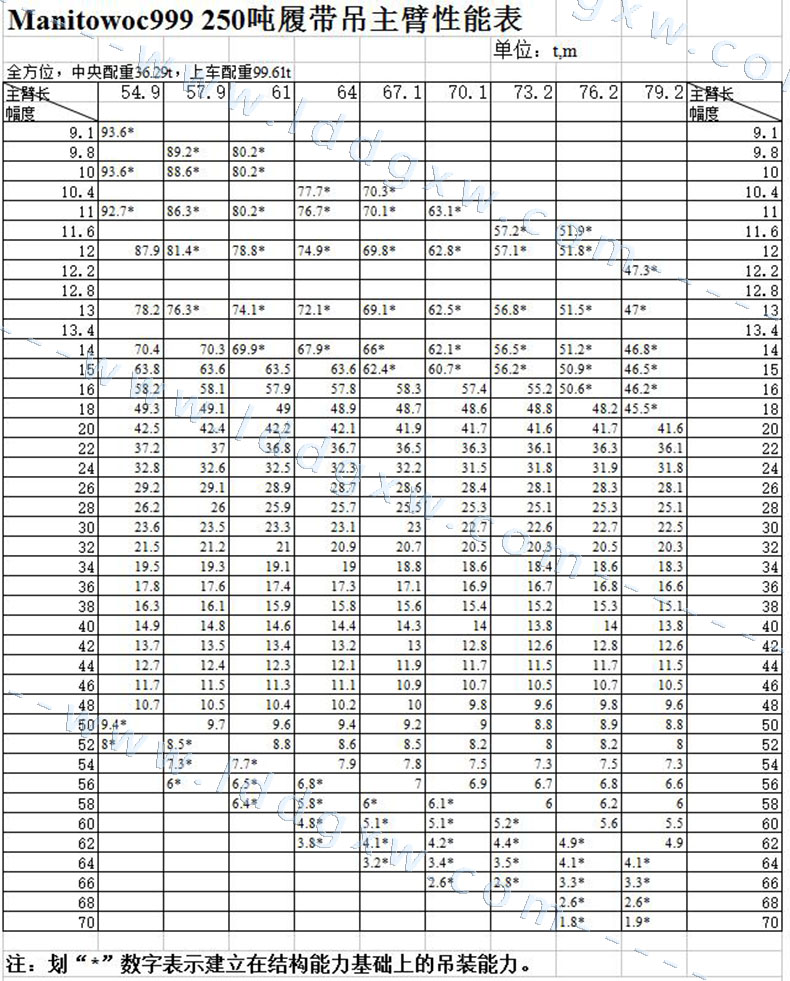 Manitowoc999 250吨履带吊主臂性能表
单位：t,m
全方位，中央配重36.29t，上车配重99.61t
主臂长 54.9 57.9 61 64 67.1 70.1 73.2 76.2 79.2 主臂长
幅度 幅度
9.1 93.6* 9.1
9.8 89.2* 80.2* 9.8
10 93.6* 88.6* 80.2* 10
10.4 77.7* 70.3* 10.4
11 92.7* 86.3* 80.2* 76.7* 70.1* 63.1* 11
11.6 57.2* 51.9* 11.6
12 87.9 81.4* 78.8* 74.9* 69.8* 62.8* 57.1* 51.8* 12
12.2 47.3* 12.2
12.8 12.8
13 78.2 76.3* 74.1* 72.1* 69.1* 62.5* 56.8* 51.5* 47* 13
13.4 13.4
14 70.4 70.3 69.9* 67.9* 66* 62.1* 56.5* 51.2* 46.8* 14
15 63.8 63.6 63.5 63.6 62.4* 60.7* 56.2* 50.9* 46.5* 15
16 58.2 58.1 57.9 57.8 58.3 57.4 55.2 50.6* 46.2* 16
18 49.3 49.1 49 48.9 48.7 48.6 48.8 48.2 45.5* 18
20 42.5 42.4 42.2 42.1 41.9 41.7 41.6 41.7 41.6 20
22 37.2 37 36.8 36.7 36.5 36.3 36.1 36.3 36.1 22
24 32.8 32.6 32.5 32.3 32.2 31.5 31.8 31.9 31.8 24
26 29.2 29.1 28.9 28.7 28.6 28.4 28.1 28.3 28.1 26
28 26.2 26 25.9 25.7 25.5 25.3 25.1 25.3 25.1 28
30 23.6 23.5 23.3 23.1 23 22.7 22.6 22.7 22.5 30
32 21.5 21.2 21 20.9 20.7 20.5 20.3 20.5 20.3 32
34 19.5 19.3 19.1 19 18.8 18.6 18.4 18.6 18.3 34
36 17.8 17.6 17.4 17.3 17.1 16.9 16.7 16.8 16.6 36
38 16.3 16.1 15.9 15.8 15.6 15.4 15.2 15.3 15.1 38
40 14.9 14.8 14.6 14.4 14.3 14 13.8 14 13.8 40
42 13.7 13.5 13.4 13.2 13 12.8 12.6 12.8 12.6 42
44 12.7 12.4 12.3 12.1 11.9 11.7 11.5 11.7 11.5 44
46 11.7 11.5 11.3 11.1 10.9 10.7 10.5 10.7 10.5 46
48 10.7 10.5 10.4 10.2 10 9.8 9.6 9.8 9.6 48
50 9.4* 9.7 9.6 9.4 9.2 9 8.8 8.9 8.8 50
52 8* 8.5* 8.8 8.6 8.5 8.2 8 8.2 8 52
54 7.3* 7.7* 7.9 7.8 7.5 7.3 7.5 7.3 54
56 6* 6.5* 6.8* 7 6.9 6.7 6.8 6.6 56
58 6.4* 5.8* 6* 6.1* 6 6.2 6 58
60 4.8* 5.1* 5.1* 5.2* 5.6 5.5 60
62 3.8* 4.1* 4.2* 4.4* 4.9* 4.9 62
64 3.2* 3.4* 3.5* 4.1* 4.1* 64
66 2.6* 2.8* 3.3* 3.3* 66
68 2.6* 2.6* 68
70 1.8* 1.9* 70
注：划“*”数字表示建立在结构能力基础上的吊装能力。
--www.lddgxw.com-----